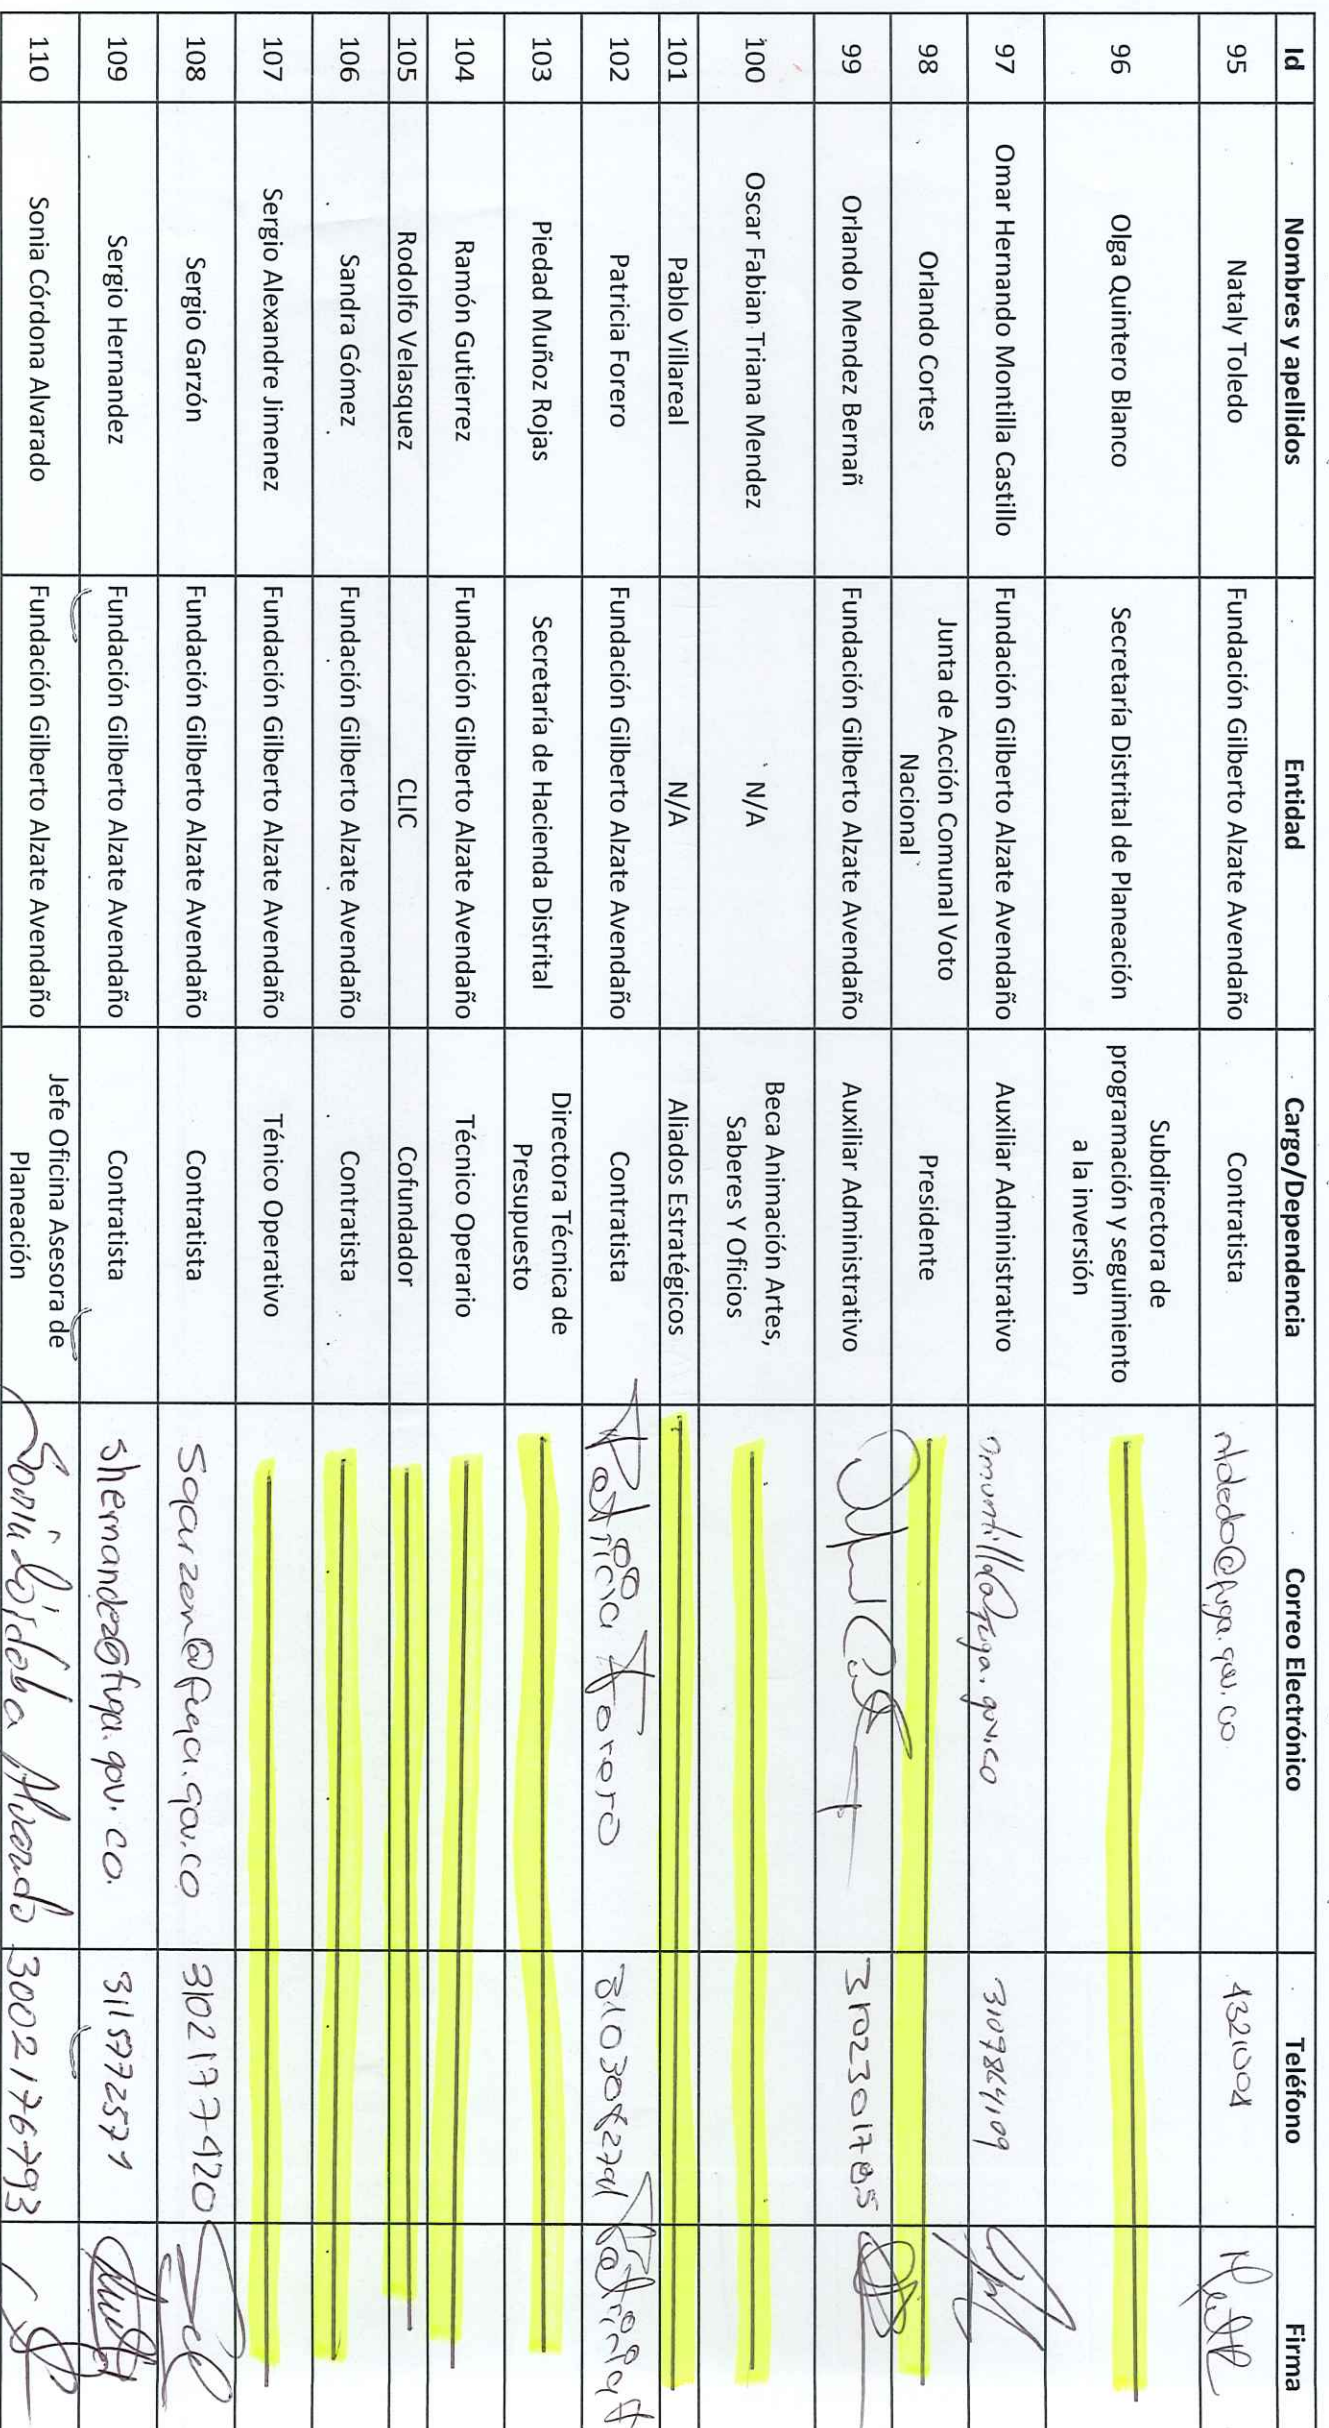 Id Nombres y apellidos Entidad Cargo/Dependencia Correo Electrónico Teléfono Firma
95 Nataly Toledo Fundación Gilberto Alzate Avendaño Contratista ntoledo@fuga.gov.co 4321004
96 Olga Quintero Blanco Secretaría Distrital de Planeación Subdirectora de
programación y seguimiento
a la inversión
97 Omar Hernando Montilla Castillo Fundación Gilberto Alzate Avendaño Auxiliar Administrativo omontilla@fuga.gov.co 3109864109
98 Orlando Cortes Junta de Acción Comunal Voto
Nacional Presidente
99 Orlando Mendez Bernañ Fundación Gilberto Alzate Avendaño Auxiliar Administrativo
100 Oscar Fabian Triana Mendez N/A Beca Animación Artes,
Saberes Y Oficios
101 Pablo Villareal N/A Aliados Estratégicos
102 Patricia Forero Fundación Gilberto Alzate Avendaño Contratista Patricia Forero 3103082791
103 Piedad Muñoz Rojas Secretaría de Hacienda Distrital Directora Técnica de
Presupuesto
104 Ramón Gutierrez Fundación Gilberto Alzate Avendaño Técnico Operario
105 Rodolfo Velasquez CLIC Cofundador
106 Sandra Gómez Fundación Gilberto Alzate Avendaño Contratista
107 Sergio Alexandre Jimenez Fundación Gilberto Alzate Avendaño Ténico Operativo
108 Sergio Garzón Fundación Gilberto Alzate Avendaño Contratista sgarzon@fuga.gov.co 3102177420
109 Sergio Hernandez Fundación Gilberto Alzate Avendaño Contratista shernandez@fuga.gov.co. 3115972579
110 Sonia Córdona Alvarado Fundación Gilberto Alzate Avendaño Jefe Oficina Asesora de
Planeación Sonia Córdoba Alvarado 3002176793